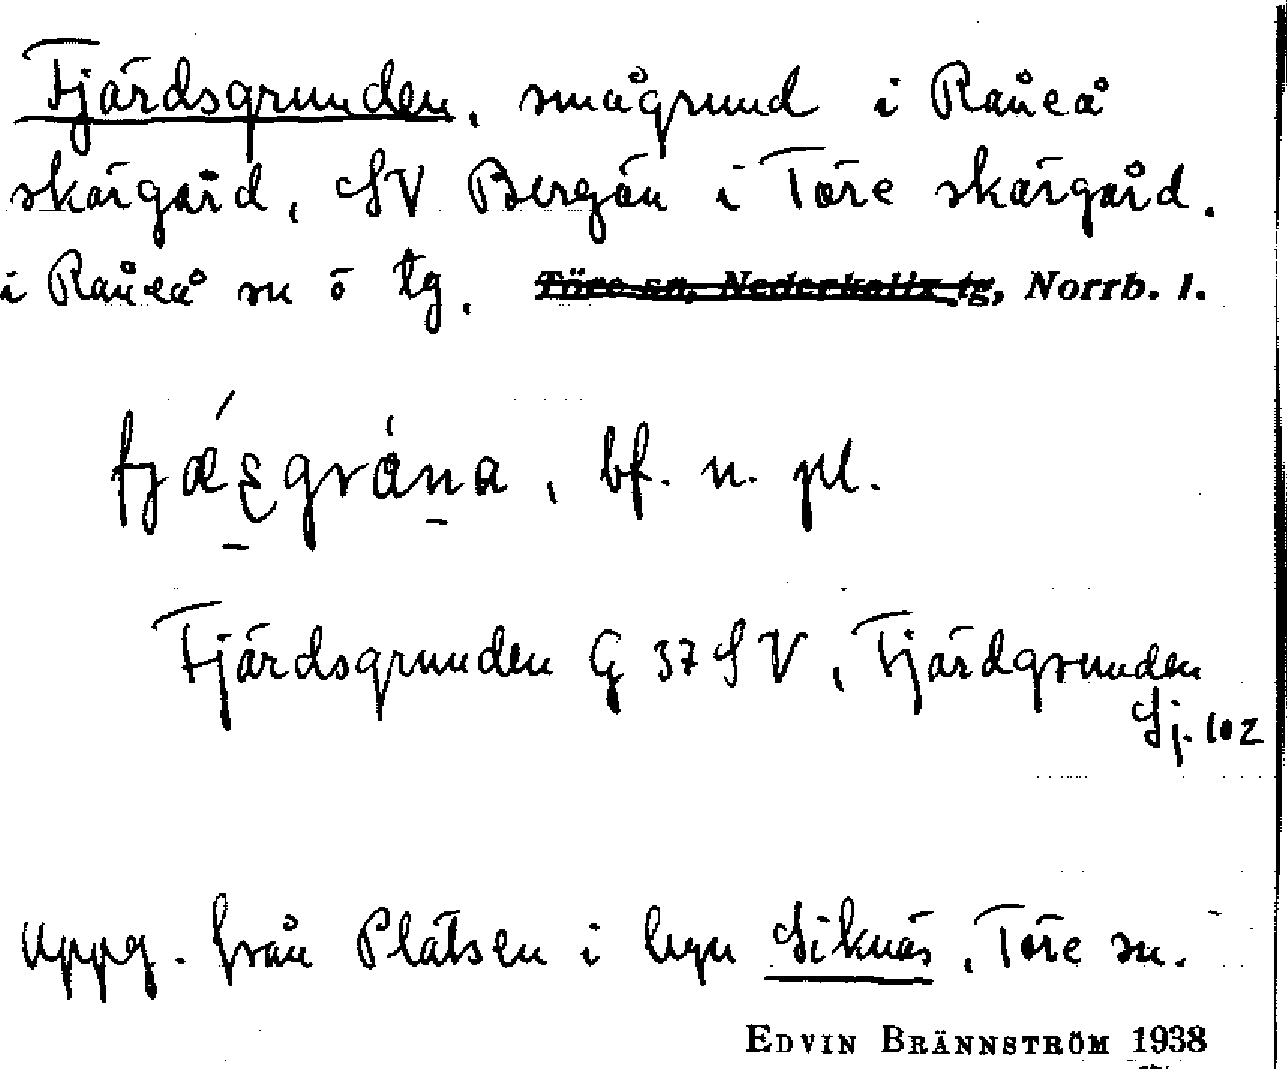 Fjärdsgrunden, smågrund i Råneå
skärgård, SV Bergön i Töre skärgård.
i Råneå sn o tg. Töre sn, Nederkalix tg, Norrb. l.
bf. n. pl.
Fjärdsgrunden G 37 SV, Fjärdgrunden
Sj. 102
Uppg. från Platsen i byn Siknäs, Töre sn.
EDVIN BRÄNNSTRÖM 1938